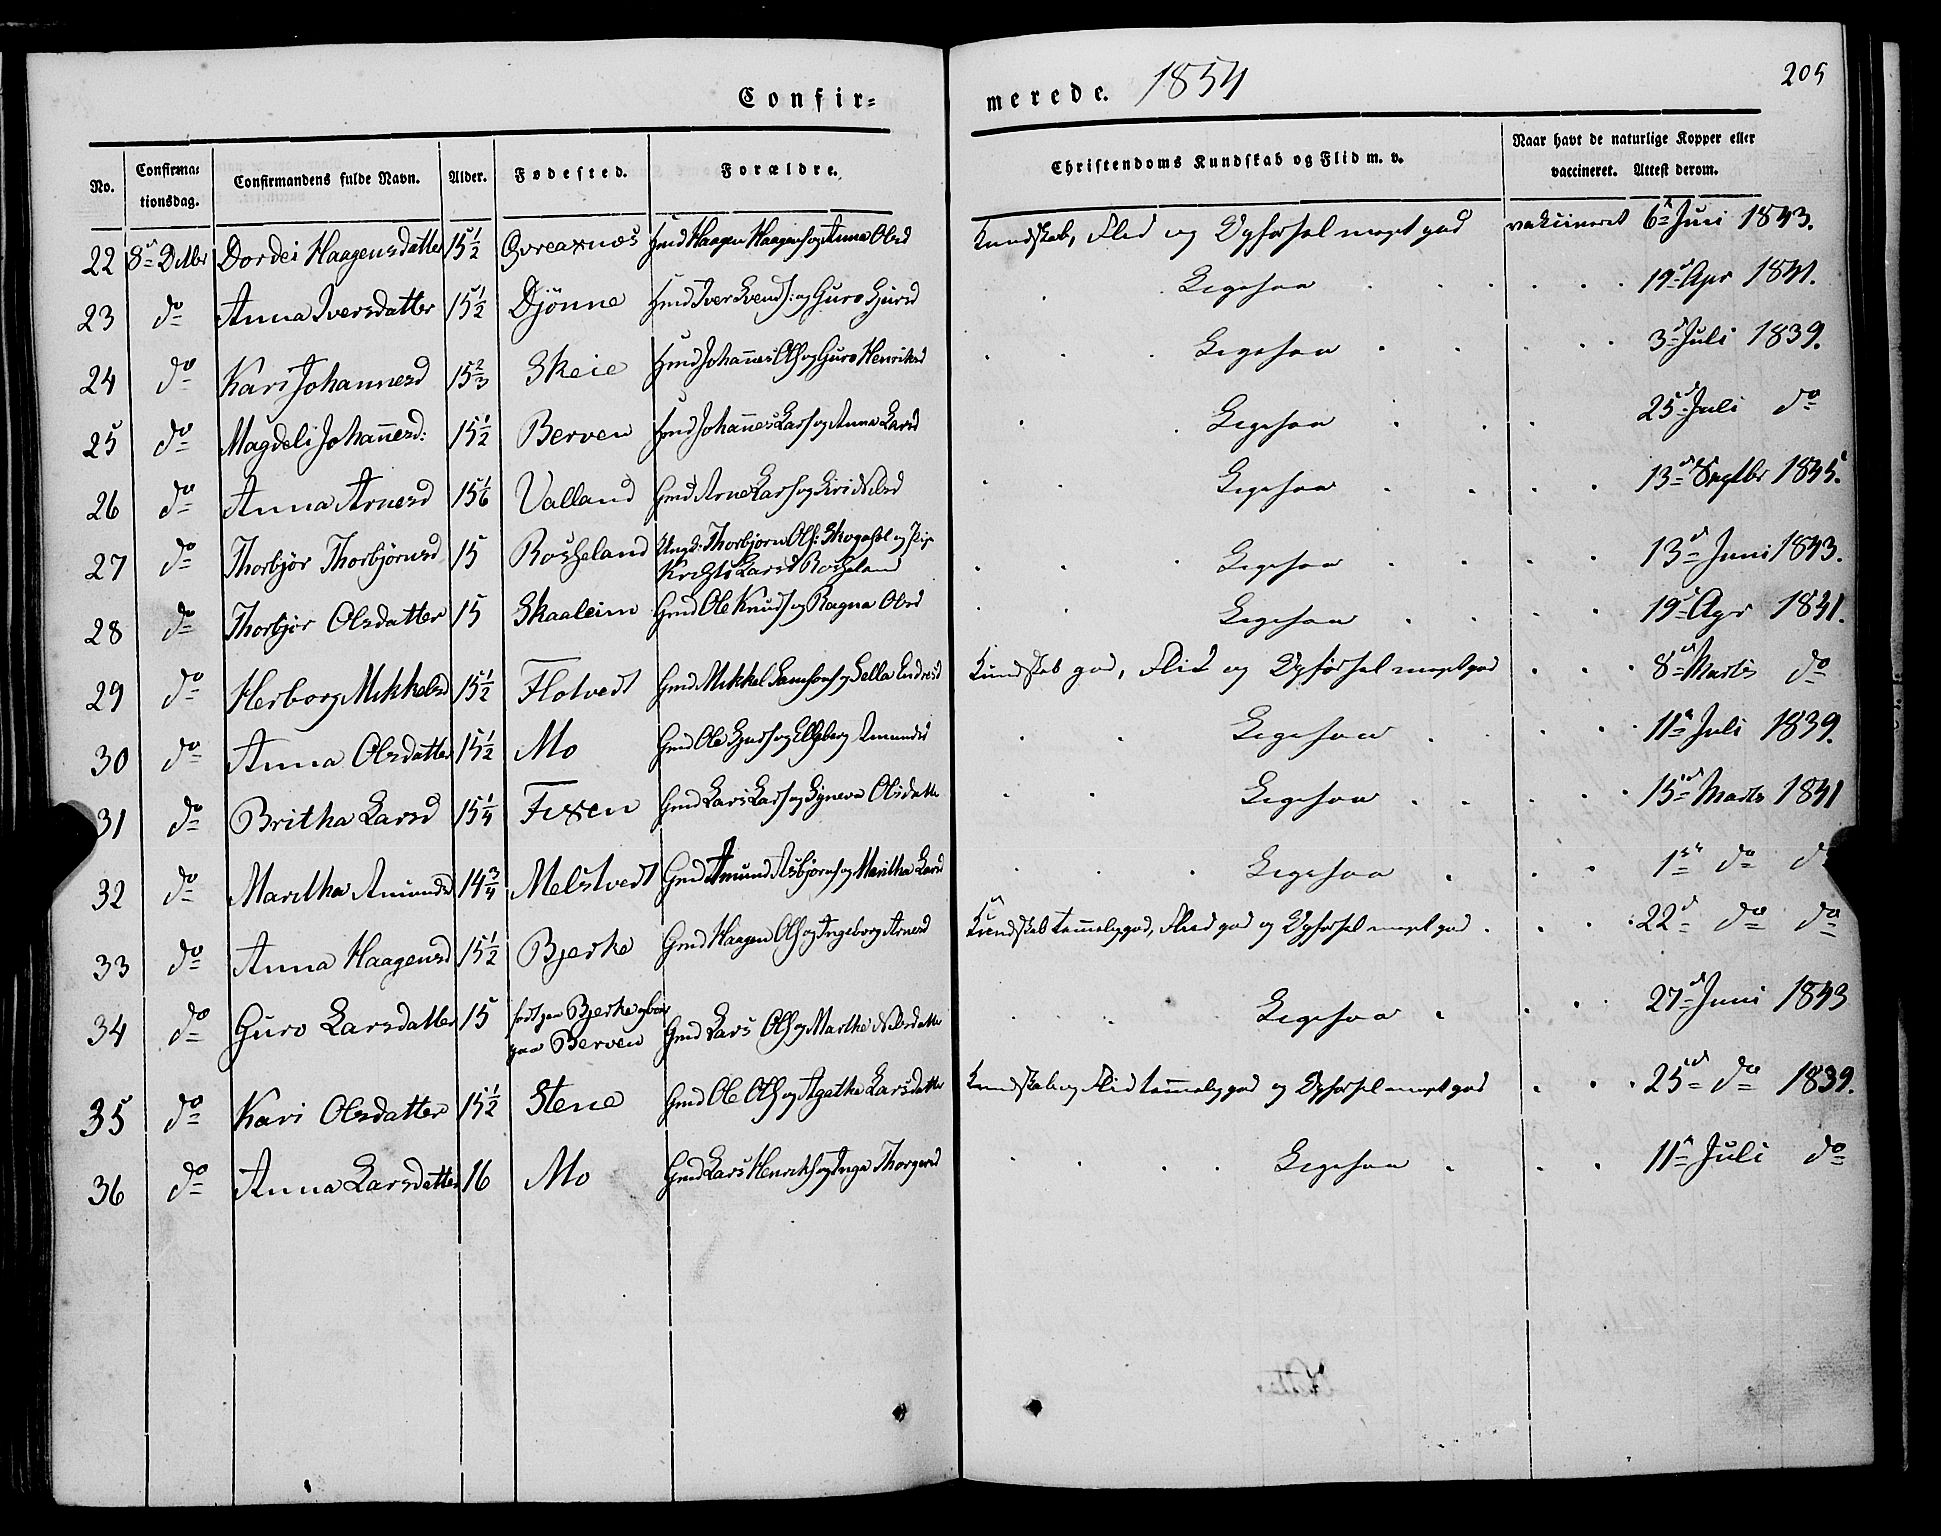 Confir-
merede. 1854
205
No.
Confirma-
tionsdag.
Confirmandens fulde Navn.
Alder.
Fødested.
Forældre.
Christendoms Kundskab og Flid m. v.
Naar havt de naturlige Kopper eller
vaccineret. Attest derom.
22 8de Octbr Dordei Haagensdatter 15 1/2 Qvrexnæs Gmd Haagen Haagens og Anna Olsd Kundskab, Flid og Opførsel meget god vakcineret 6te Juni 1843.
23 do Anna Iversdatter 15 1/2 Djönne Gmd Iver Svends: og Guro Gjursd Ligesaa 19de Apr 1841.
24 do Kari Johannesd 15 2/3 Skeie Hmd Johannes Ols og Guro Henriksd Ligesaa 3die Juli 1839.
25 do Magdeli Johañesd: 15 1/2 Berven Hmd Johañes Lars og Anna Larsd Ligesaa 25de Juli do
26 do Anna Arnesd 15 1/6 Valland Gmd Arne Lars og Siri Nilsd Ligesaa 13de Septbr 1845.
27 do Thorbjør Thorbjörnsd 15 Rosseland Ungk: Thorbjørn Ols: Skogasel og Pige
Larsd Rosseland Ligesaa 13de Juni 1843.
28 do Thorbjør Olsdatter 15 Skaaleim Gmd Ole Knuds og Ragna Olsd Ligesaa 19de Apr 1841.
29 do Herborg Mikkelsd 15 1/2 Flotvedt Gmd Mikkel Samsons og Sella Endresd Kundskab god, Flid og Opførsel meget god 8de Marts do
30 do Anna Olsdatter 15 1/2 Mo Gmd Ole Gjurs og Elsberg Amundsd Ligesaa 11te Juli 1839.
31 do Britha Larsd 15 1/4 Fixen Gmd Lars Lars og Synneva Olsdatter Ligesaa 15de Marts 1841
32 do Maritha Amundsd 14 3/4 Melstvedt Gmd Amund Asbjørns og Maritha Larsd Ligesaa 1ste do do
33 do Anna Haagensd 15 1/2 Bjerke Gmd Haagen Ols og Ingeborg Arnesd Kundskab temmelig god, Flid god og Opførsel meget god 22de do do
34 do Guro Larsdatter 15 født paa Bjerke og boer
paa Berven Gmd Lars Ols og Marthe Nilsdatter Ligesaa 27de Juni 1843
35 do Kari Olsdatter 15 1/2 Stene Gmd Ole Ols og Agatha Larsdatter Kundskab og Flid temmelig god og Opførsel meget god 25de do 1839.
36 do Anna Larsdatter 16 Mo Gmd Lars Henriks og Inga Thorgersd Ligesaa 11te Juli do